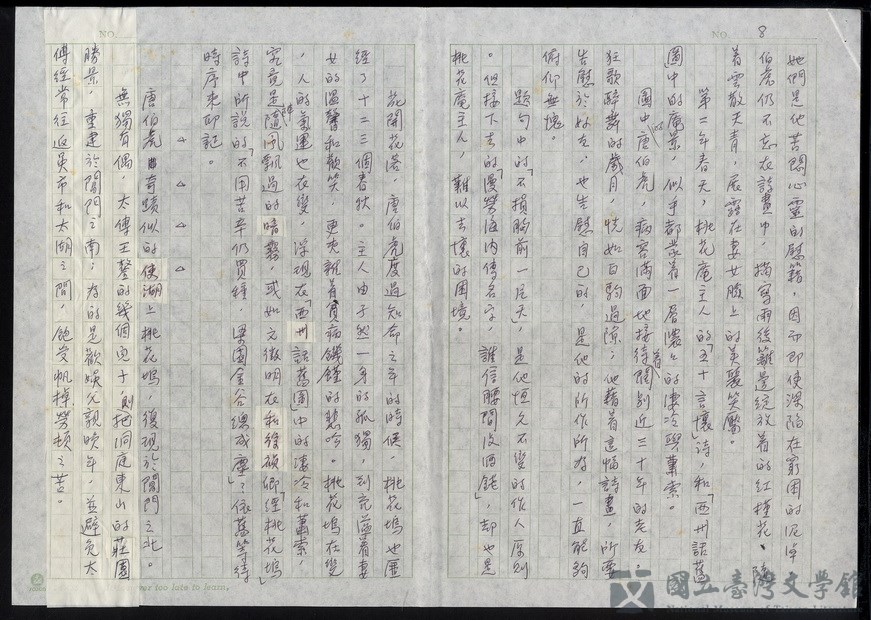 NO. 8
她們是他苦悶心靈的慰籍，因而即使深陷在窮困的泥淖
伯虎仍不忘在詩畫中，描寫雨後籬邊綻放着的紅槿花、隨
着雲散天青，展露在妻女臉上的美麗笑靨。
第二年春天，桃花庵主人的「五十言懷」詩，和「西州話舊
圖」中的廬景，似乎都蒙着一層濃濃的淒冷與蕭索。
圖中的唐伯虎，病容滿面地接待闊別近三十年的老友。
狂歌醉舞的歲月，恍如白駒過隙；他藉着這幅詩畫，所要
告慰於好友，也告慰自己的，是他的所作所為，一直能夠
俯仰無愧。
題句中的「不損胸前一片天」，是他恒久不變的作人原則
。但接下去的「漫勞海內傳名字，誰信腰間沒酒錢」，却也是
桃花庵主人，難以去懷的困境。
NO.
花開花落，唐伯虎度過知命之年的時候，桃花塢也匪
經了十二三個春秋。主人由孑然一身的孤獨，到充滿着妻
女的溫馨和歡笑，更夾雜着貧病饑饉的悲吟。桃花塢在變
，人的氣運也在變，浮現在「西州話舊圖」中的淒冷和蕭索，
究竟是隨風飄過的暗翳，或如文徵明在和徐禎卿「經桃花塢」
詩中所說的「不用苦辛仍買種，梁園金谷總成塵」；依舊等待
時序來印記。
△ △ △ △
唐伯虎奇蹟似的使湖上桃花塢，復現於閶門之北。
無獨有偶，太傅王鏊的幾個兒子，則把洞庭東山的莊園
勝景，重建於閶門之南；為的是歡娛父親晚年，並避免太
傅經常往返吳市和太湖之間，飽受帆檣勞頓之苦。
ver too late to learn.
國立臺灣文學館